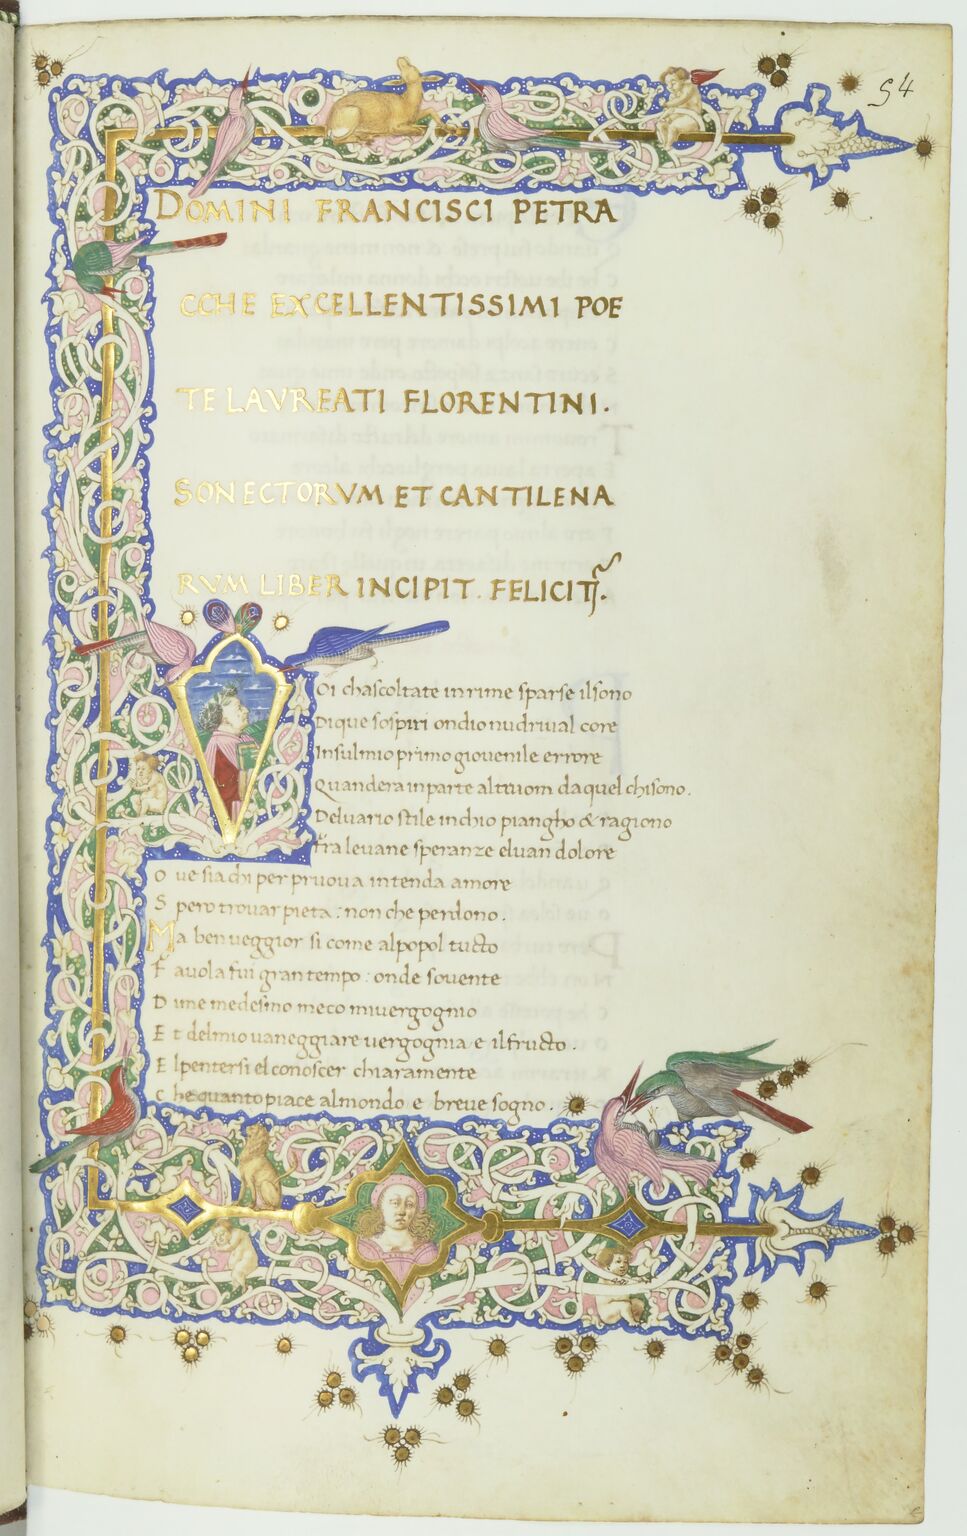 54
DOMINI FRANCISCI PETRA
CCHE EXCELLENTISSIMI POE
TE LAVREATI FLORENTINI.
SONECTORVM ET CANTILENA
RVM LIBER INCIPIT. FELICIT̃.
Voi chascoltate in rime sparse ilsono
Di que sospiri ondio nudriual core
Insulmio primo giouenile errore
Quandera in parte altruom da quel chisono.
Deluario stile inchio piangho & ragiono
Fra leuane speranze eluan dolore
O ue sia chi per pruoua intenda amore
S pero trouar pieta: non che perdono.
Ma ben ueggior si come alpopol tucto
F auola fui gran tempo: onde souente
D ime medesimo meco miuergognio
E t delmio uaneggiare uergognia e ilfructo.
E lpentersi el conoscer chiaramente
C he quanto piace almondo e breue sogno.